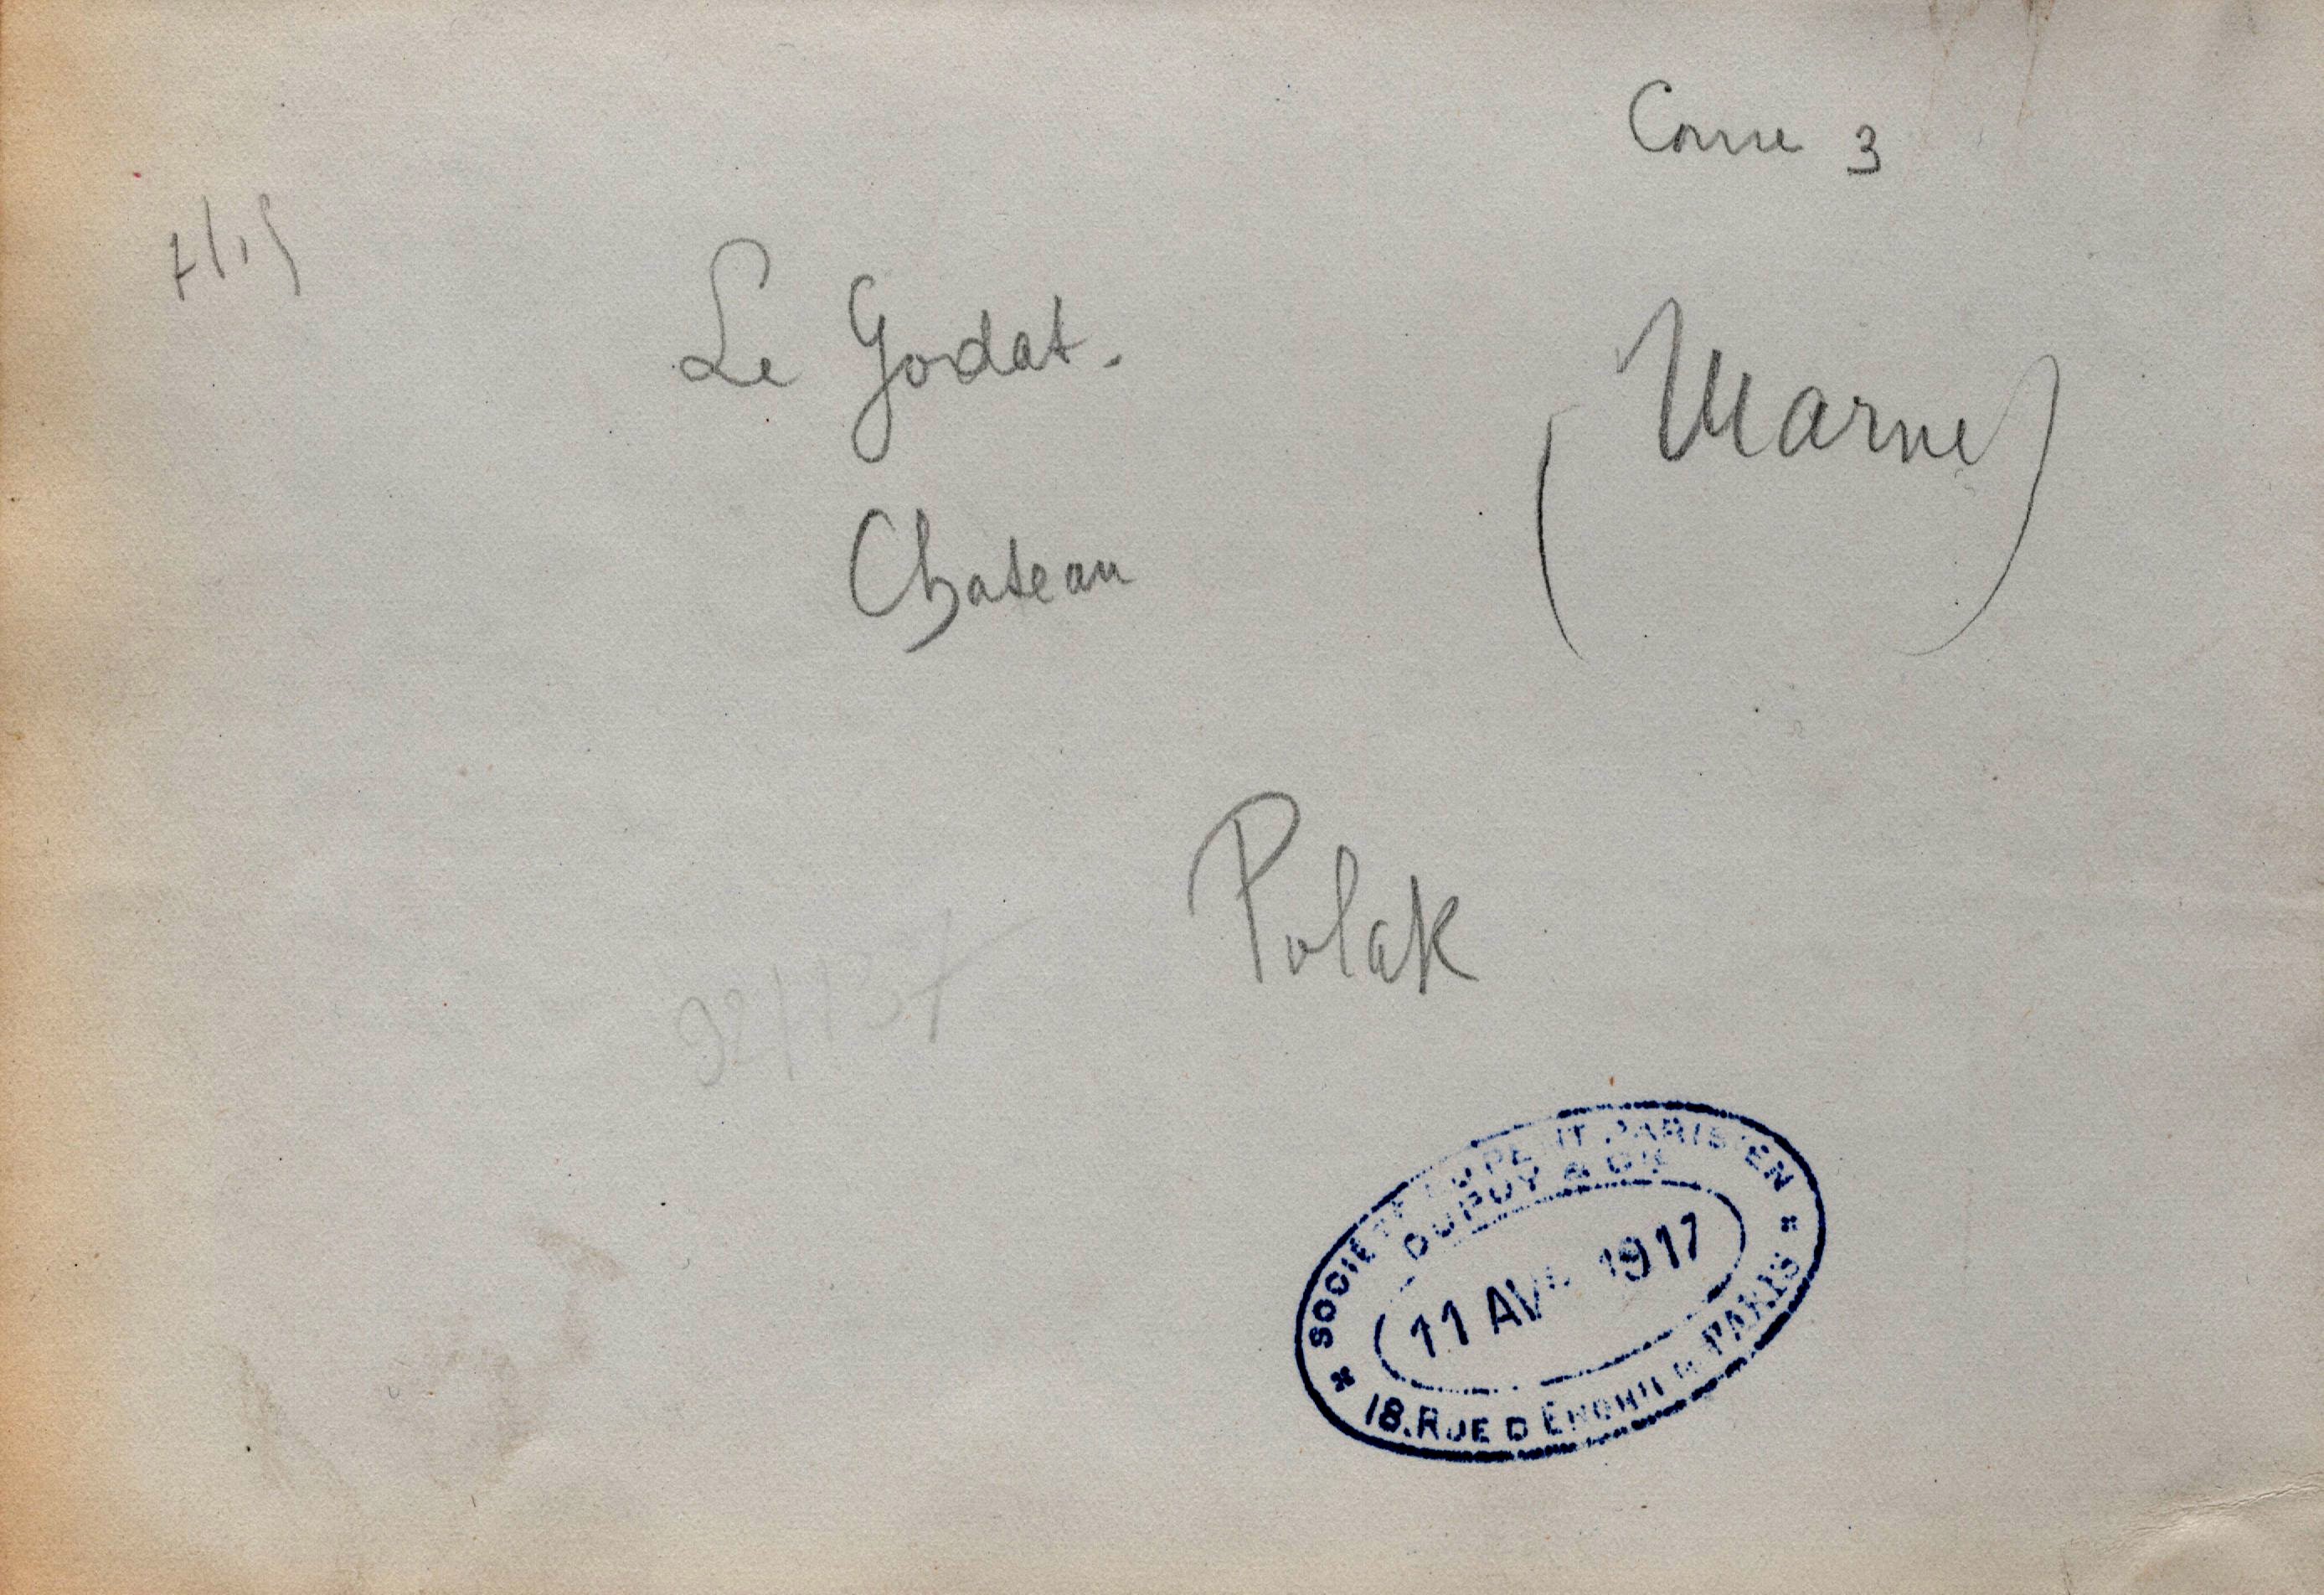 3
Le Godat.
(Marne)
Chateau
Polak
SOCIÉTÉ DU PETIT PARISIEN
DUPUY & CIE
11 AVR 1917
18. RUE D'ENGHIEN PARIS